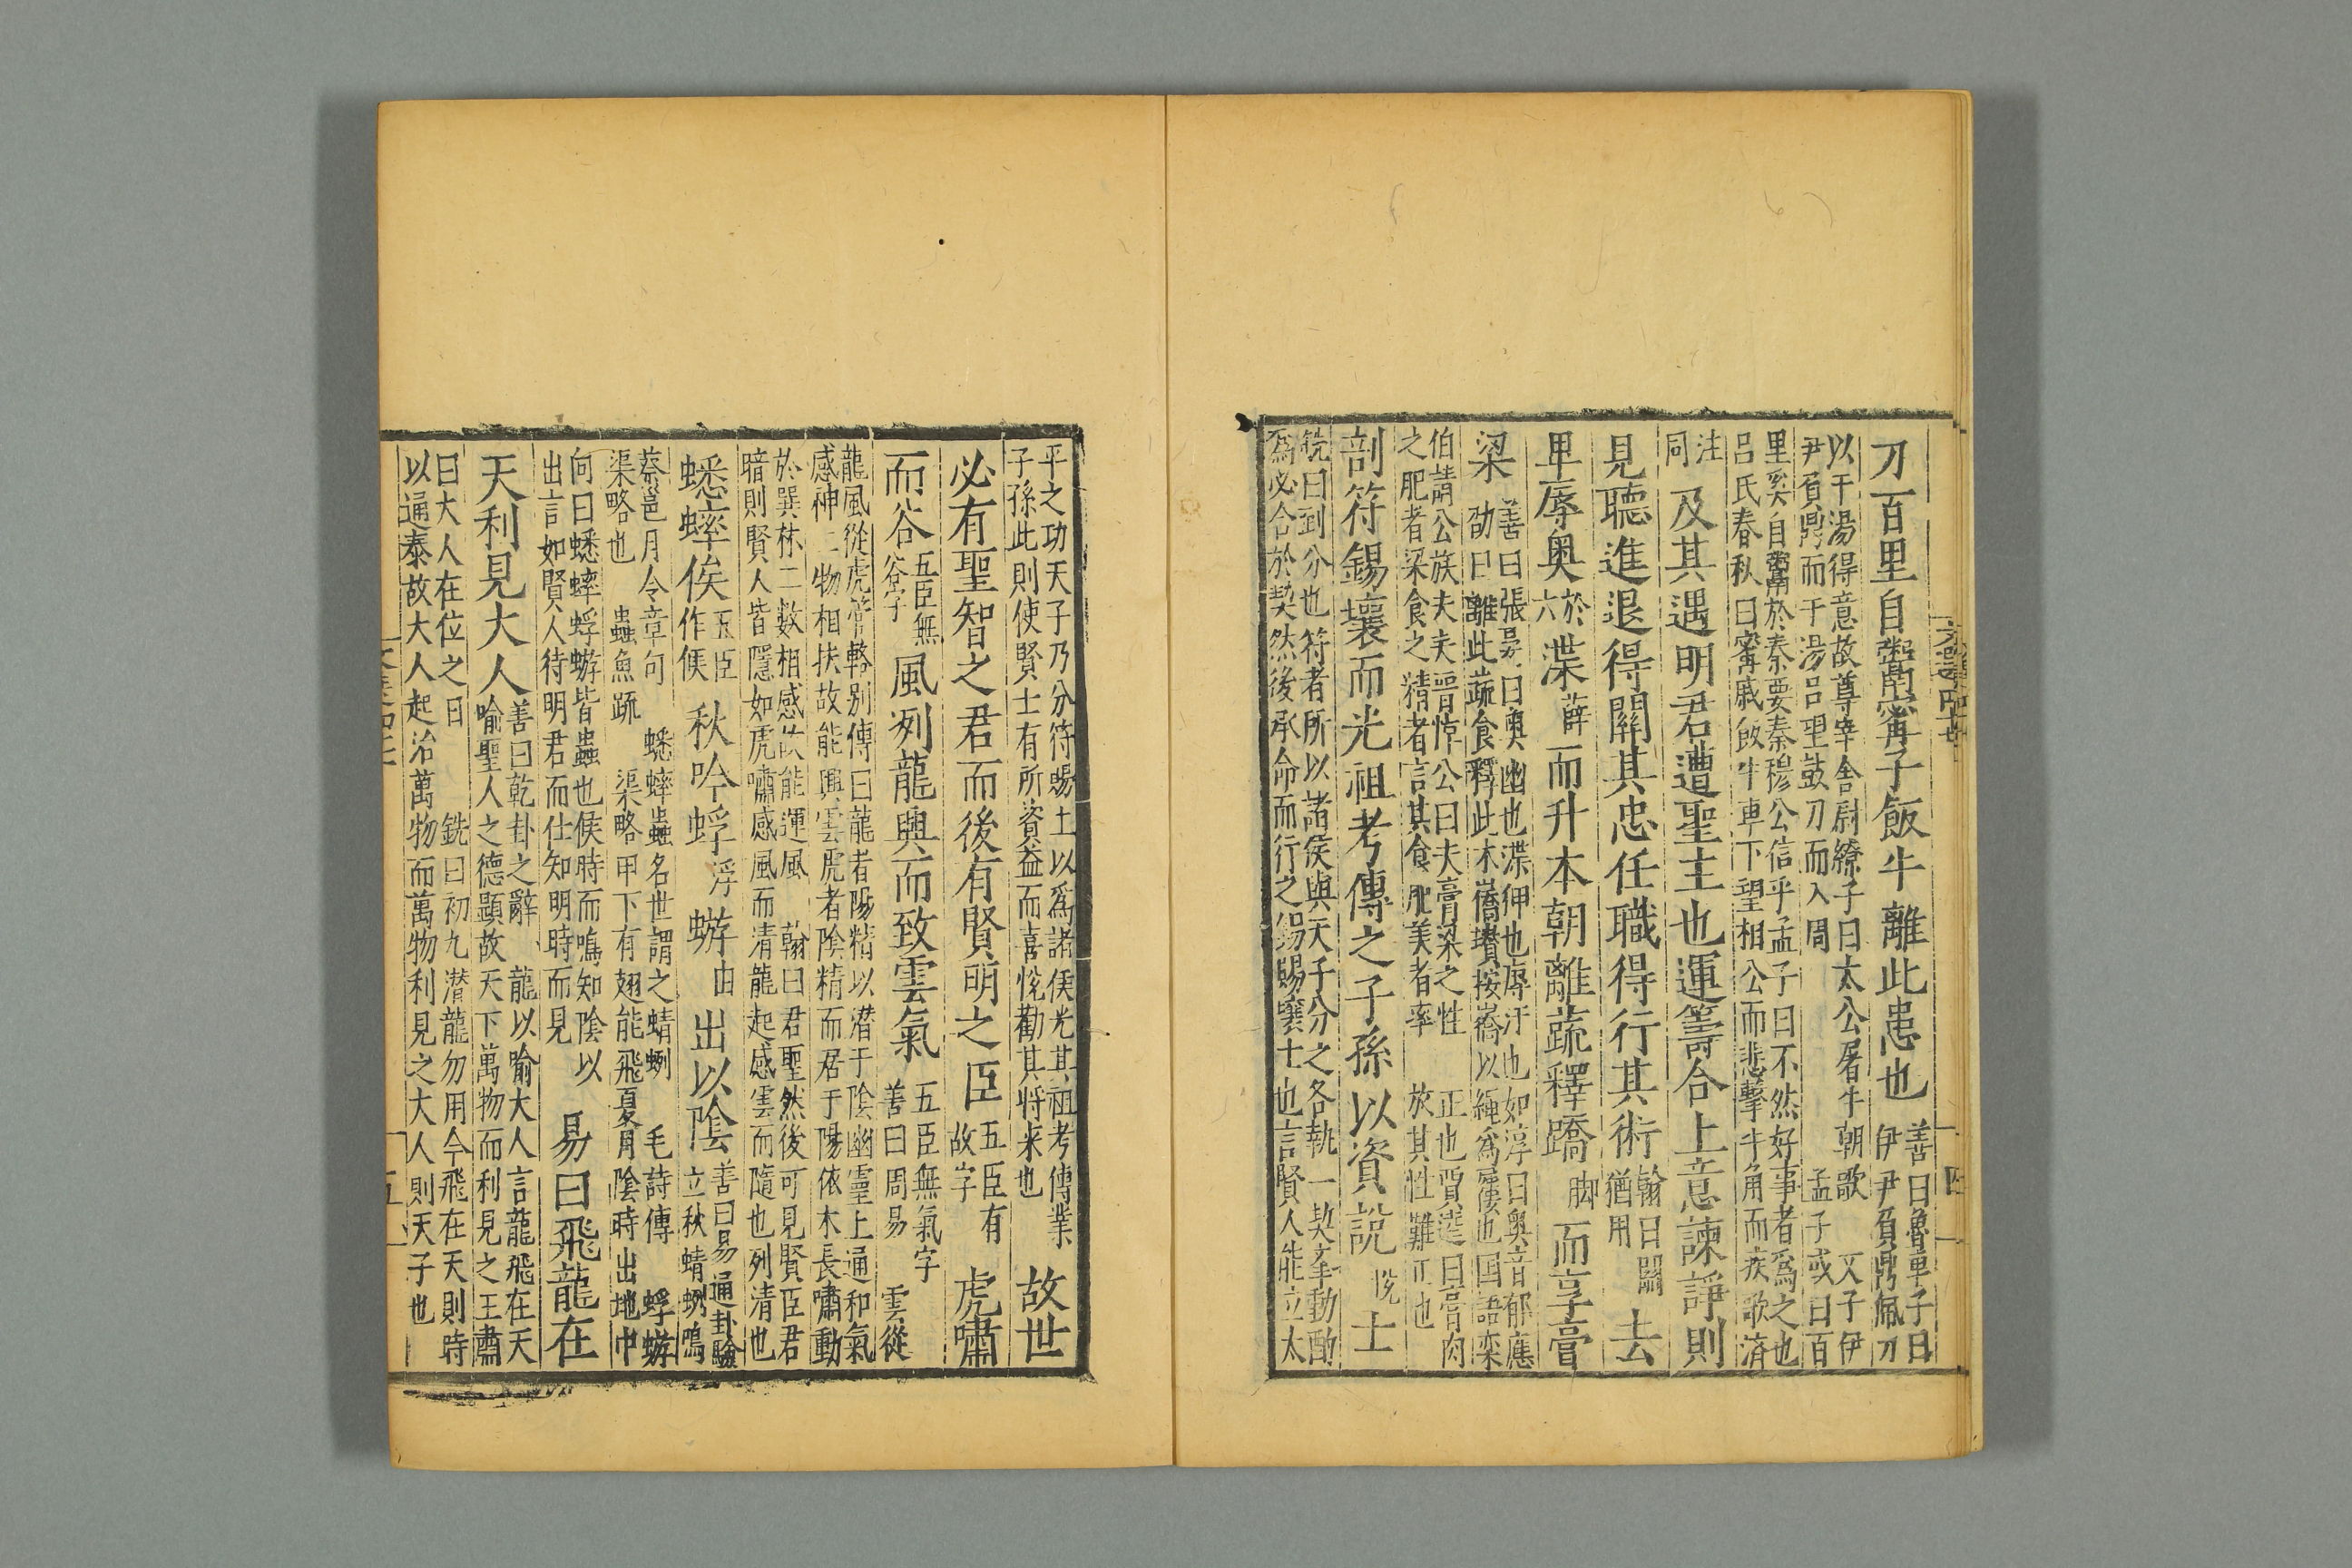 刀百里自鬻甯子飯牛離此患也善曰魯連子曰伊尹負鼎佩刀
以干湯得意故尊宰舍尉繚子曰太公屠牛朝歌又子伊
尹負鼎而干湯呂望鼓刀而入周孟子或曰百
里奚自鬻於秦要秦穆公信乎孟子曰不然好事者爲之也
呂氏春秋曰甯戚飯牛車下望桓公而悲擊牛角而疾歌濟
注同及其遇明君遭聖主也運籌合上意諫諍則
見聽進退得關其忠任職得行其術翰曰關猶用去
卑辱奧於六渫薛而升本朝離蔬釋蹻脚而享膏
梁善曰張晏曰奧幽也渫狎也辱汙也如淳曰奧音郁應
劭曰離此蔬食釋此木蹻瓚按蹻以繩爲屨也国語栾
伯請公族大夫晋悼公曰夫膏粱之性正也賈逵曰膏肉
之肥者梁食之精者言其食肥美者率放其性難正也
剖符錫壤而光祖考傳之子孫以資說悅士
銑曰剖分也符者所以諸侯與天子分之各執一契舉動酌
爲必合於契然後承命而行之錫賜壤土也言賢人能立太
平之功天子乃分符賜土以爲諸侯光其祖考傳業
子孫此則使賢士有所資益而喜悅勸其将来也
故世
必有聖智之君而後有賢明之臣五臣有故字虎嘯
而谷五臣無谷字風冽龍興而致雲氣五臣無氣字善曰周易雲從
龍風從虎管輅别傳曰龍者陽精以潛于陰幽靈上通和氣
感神二物相扶故能興雲虎者陰精而居于陽依木長嘯動
於巽林二數相感故能運風翰曰君聖然後可見賢臣君
暗則賢人皆隱如虎嘯感風而清龍起感雲而隨也列清也
蟋蟀俟五臣作候秋吟蜉浮蝣由出以陰善曰易通卦驗立秋蜻蛚鳴
蔡邕月令章句蟋蟀蟲名世謂之蜻蛚毛詩傳蜉蝣
渠略也蟲魚疏渠略甲下有翅能飛夏月陰時出地中
向曰蟋蟀蜉蝣皆蟲也候時而鳴知陰以
出言如賢人待明君而仕知明時而見
易曰飛龍在
天利見大人善曰乾卦之辭龍以喻大人言龍飛在天
喻聖人之德顯故天下萬物而利見之王肅
曰大人在位之日銑曰初九潛龍勿用今飛在天則時
以通泰故大人起治萬物而萬物利見之大人則天子也